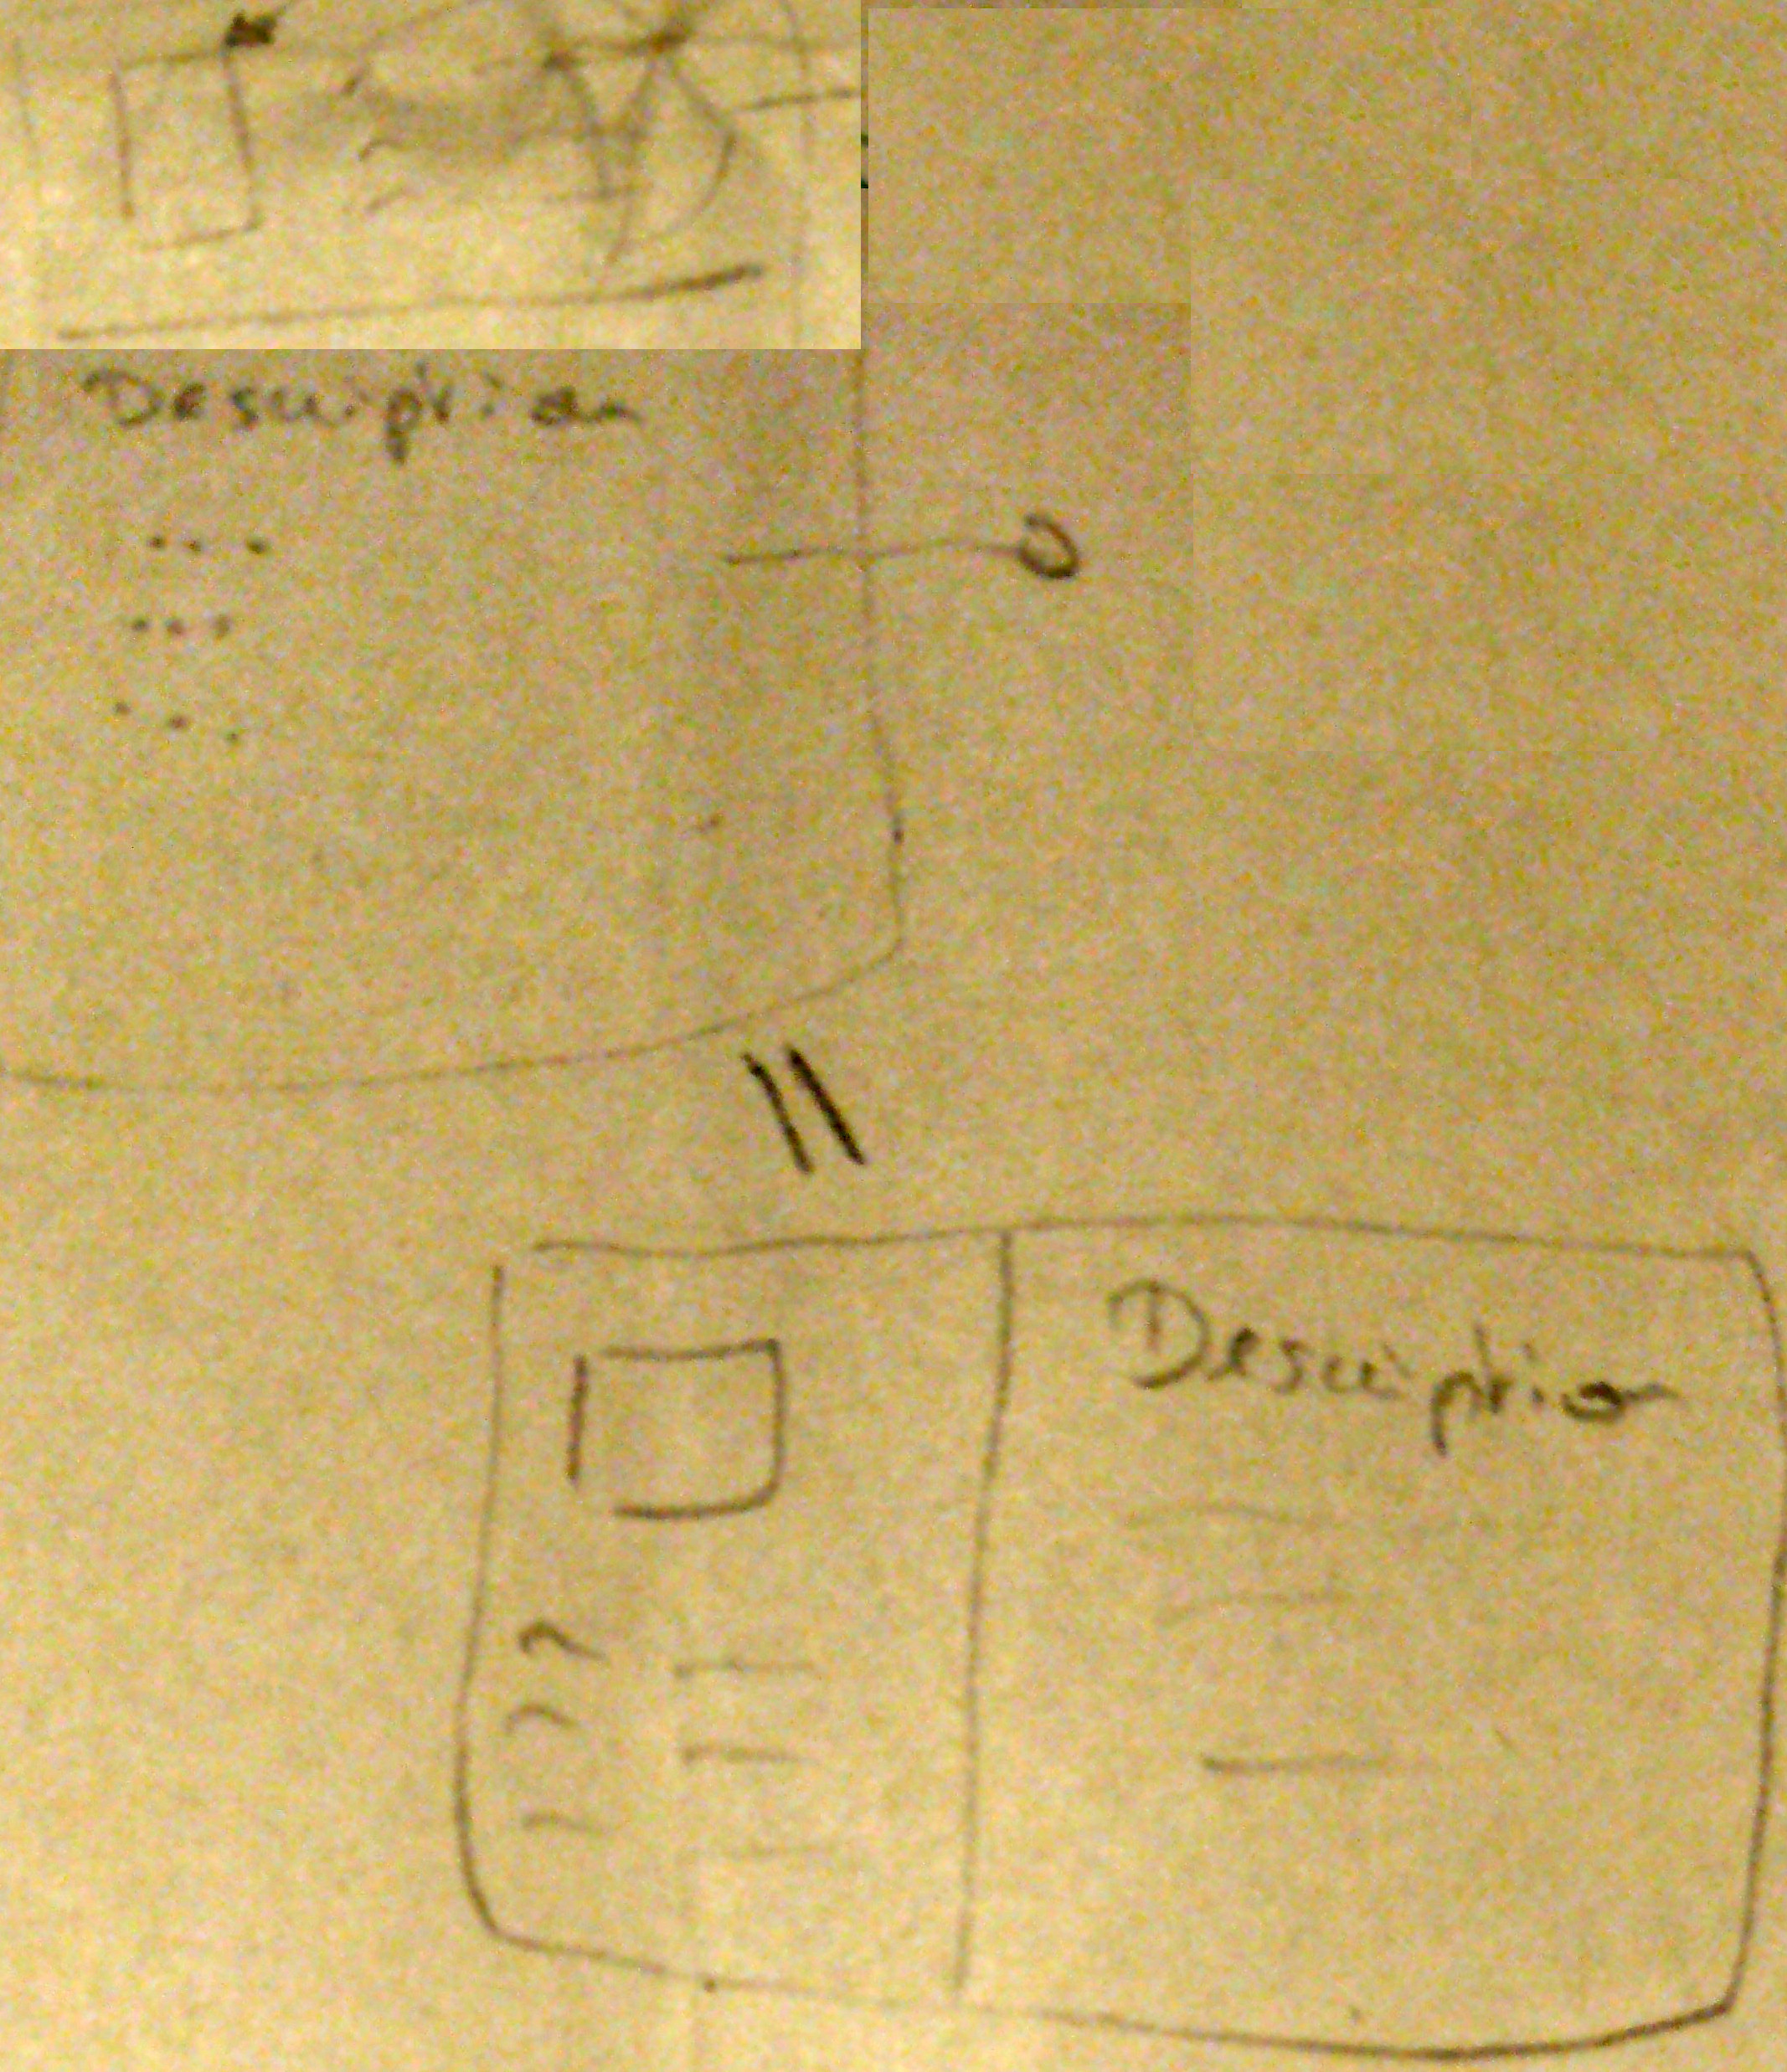 Description
Description